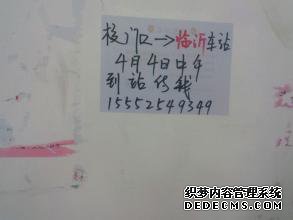 校门口→临沂车站
4月4日中午
到站付钱
15552549349
织梦内容管理系统